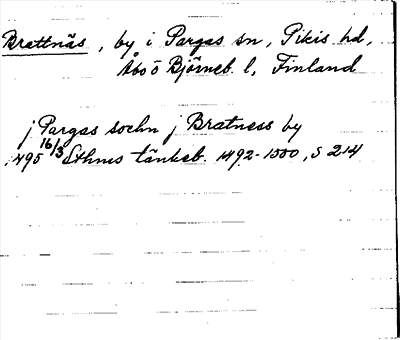 Brattnäs, by i Pargas sn, Pikis hd,
Åbo o Björneb. l, Finland
j Pargas sochn j Bratness by
1495 16/3 Sthms tänkeb. 1492-1500, s 214